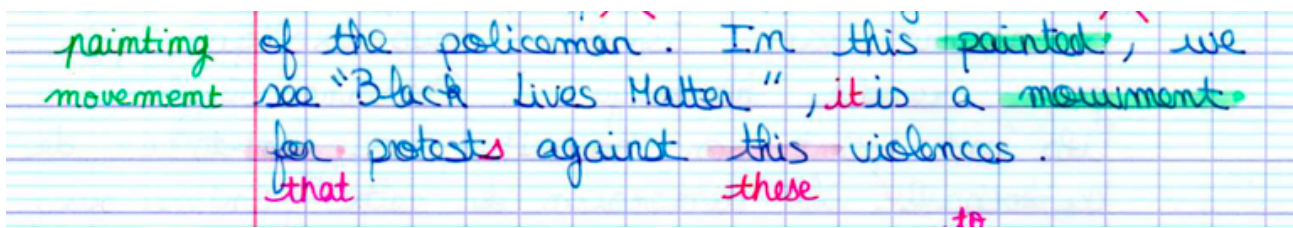 painting of the policeman. In this painted, we
movement see "Black Lives Matter", it is a mouvment
for protests against this violences.
that these
to